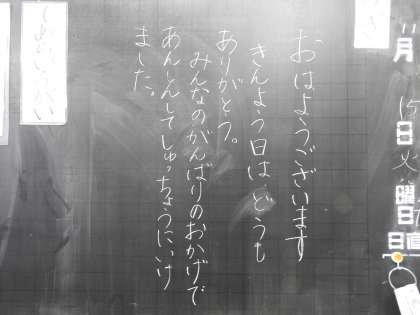 月 日 火 曜日
日直
おはようございます
きんよう日は どうも
ありがとう。
みんなのがんばりのおかげで
あんしんしてしゅっちょうにいけ
ました。